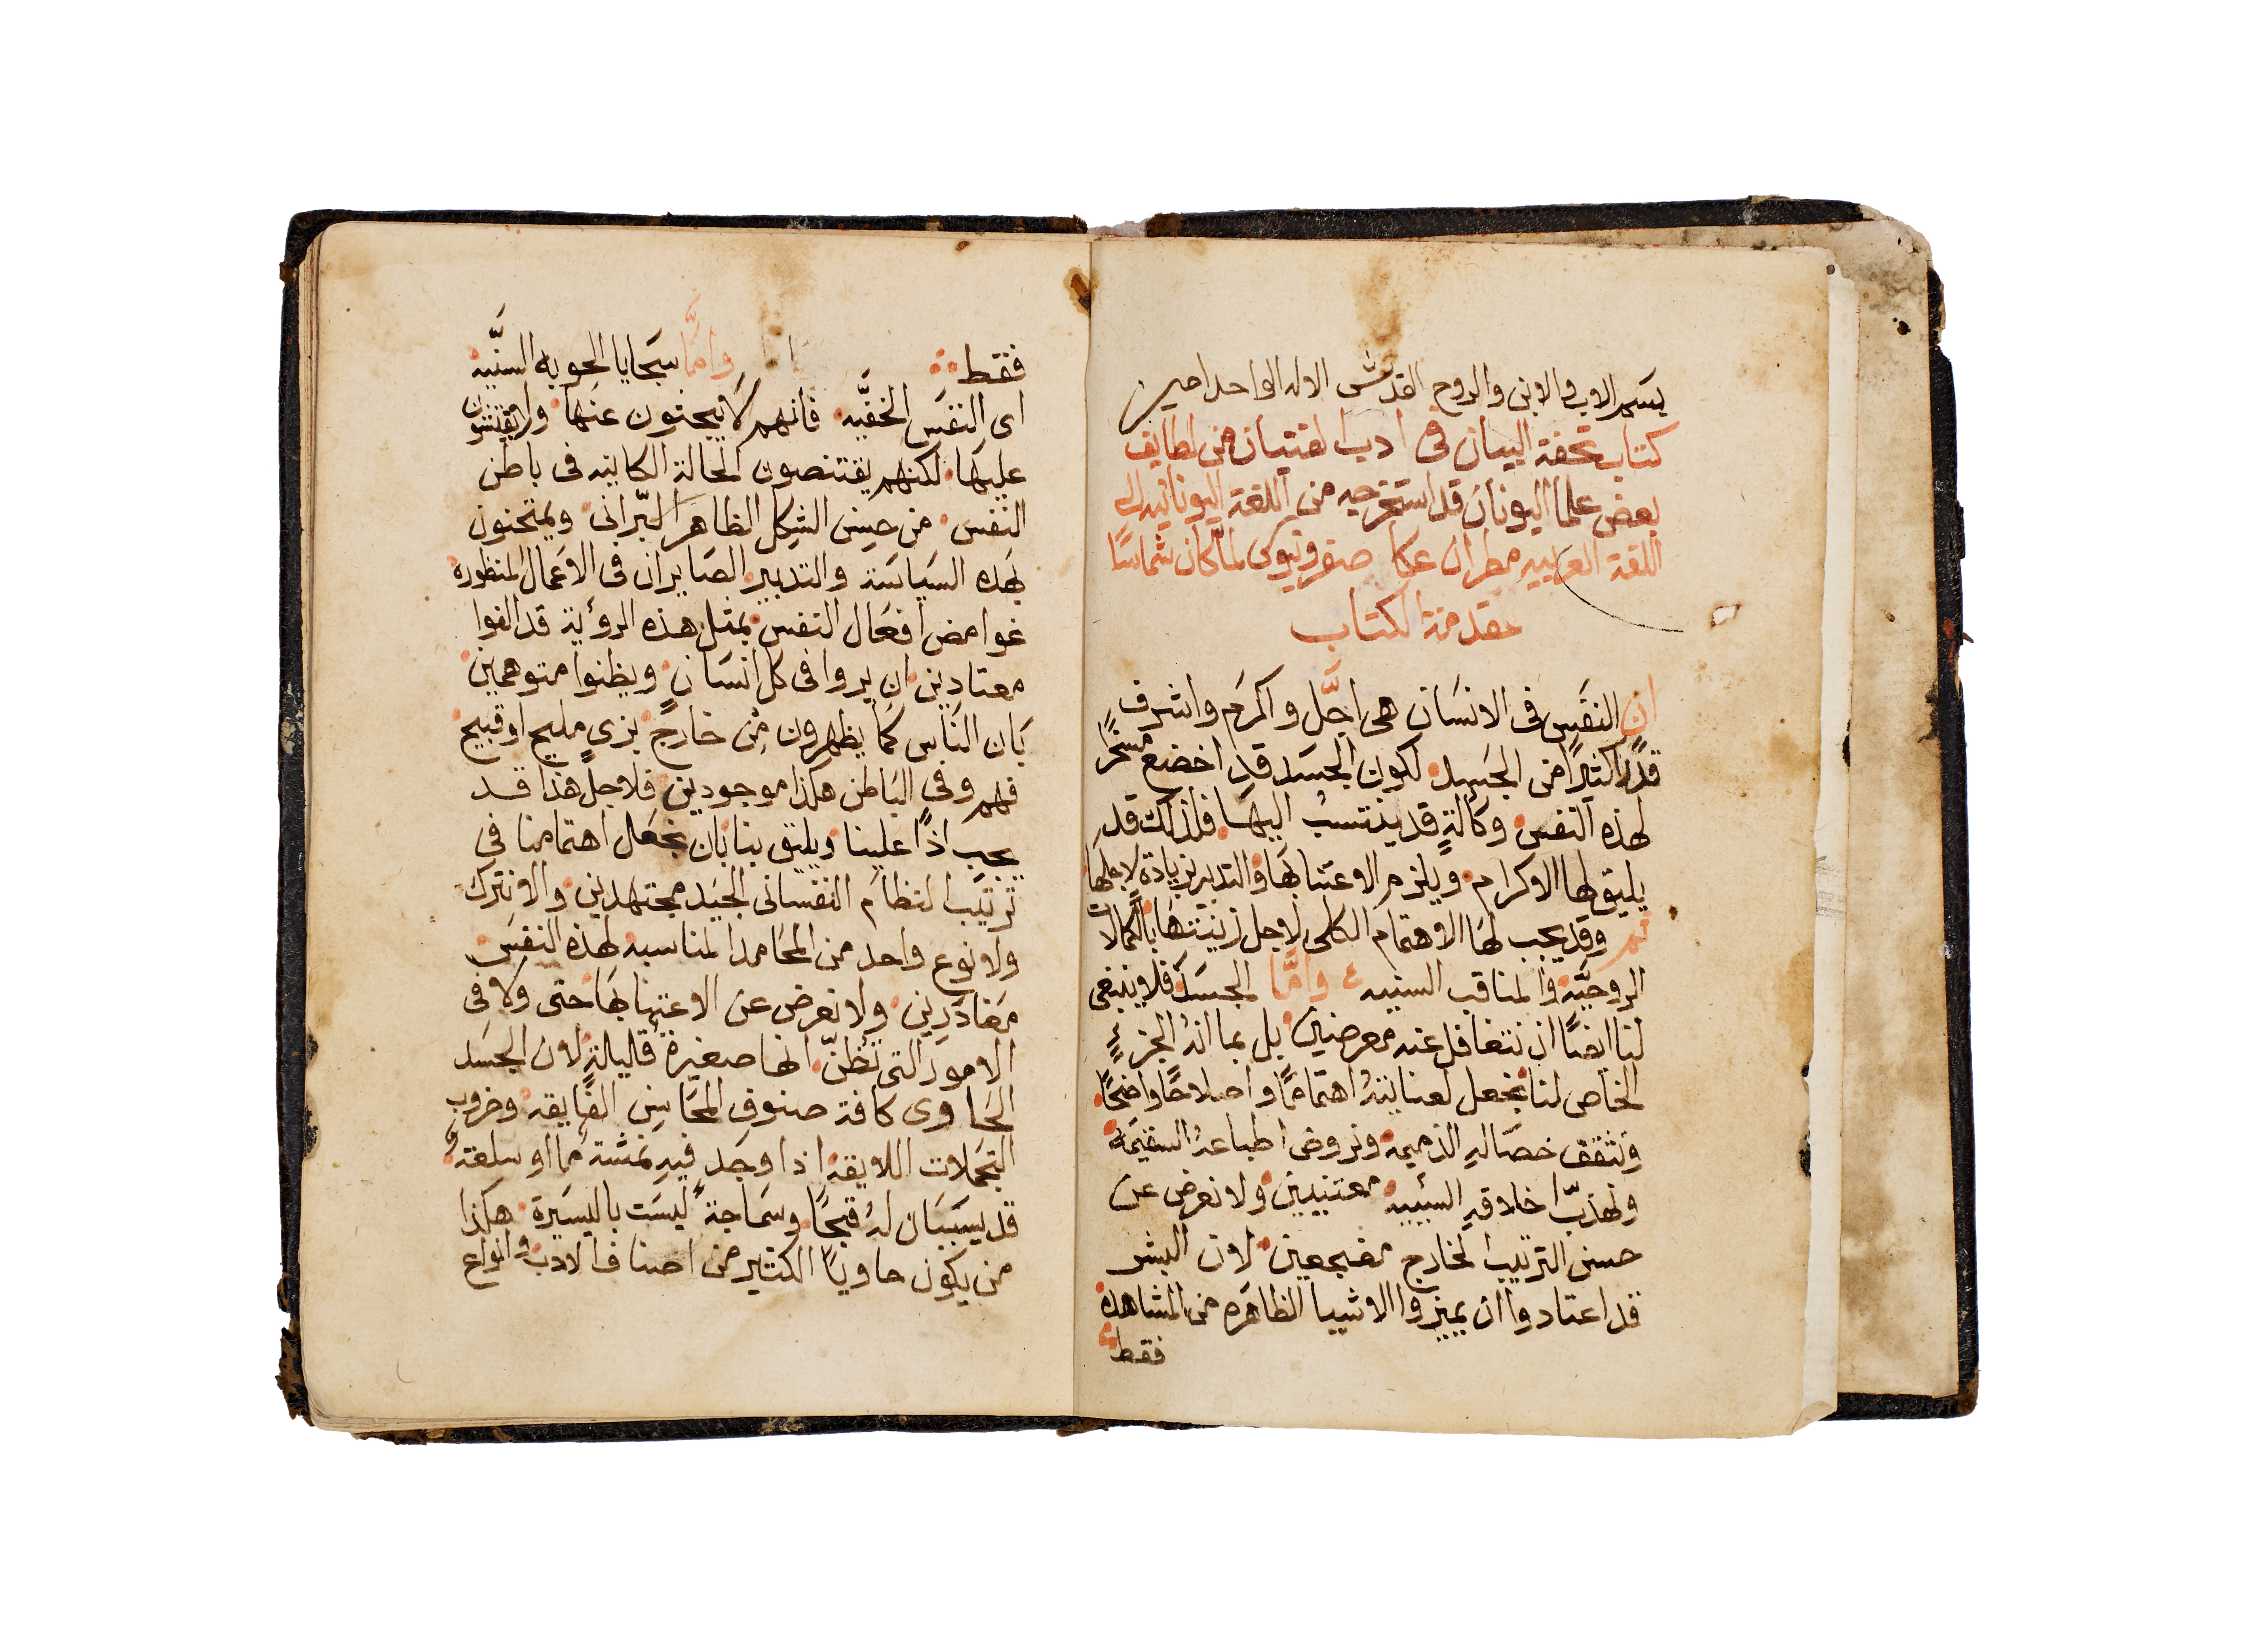 بسم الاب والابن والروح القدس الاله الواحد امين
كتاب تحفة البيان فى ادب الفتيان من لطايف
بعض علما اليونان قد استخرجه من اللغة اليونانيه الى
اللغة العربيه مطران عكا صفرونيوس لما كان شماسًا
مقدمة الكتاب
ان النفس فى الانسان هى اجَّل واكرم واشرف
قدرًا كثيرًا من الجسد لكون الجسد قد اخضع مسخرًا
لهذه النفس وكالةٍ قد ينتسبُ اليها فلذلك قد
يليق لها الاكرام ويلزم الاعتنا بها والتدبر بزيادة لاجلها
ثم وقد يجب لها الاهتمام الكلى لاجل زينتها بالكمالات
الروحيَّه والمناقب السنيه وامَّا الجسد فلا ينبغى
لنا ايضًا ان نتغافل عنه معرضين بل بما انهُ الجزءُ
الخاص لنا نجعل لعنايتهُ اهتمامًا واصلاحًا واضحًا
ونثقف خصاله الذميمة ونروض اطباعهُ السقيمة
ونهذّب اخلاقه السئييه معتنيين ولا نعرض عن
حسن الترتيب الخارج مضجعين لان البشر
قد اعتادوا ان يميزوا الاشيا الظاهره من المشاهده
فقط
فقط وامَّا سجايا الحوبه السنّيه
اى النفس الخفيَّه فانهم لا يبحثون عنها ولا يفتشون
عليها لكنهم يقتنصون الحالة الكاينه فى باطن
النفس من حسن الشكل الظاهر البّرانى ويمتحنون
بهذه السياسة والتدبير الصايران فى الاعمال المنظوره
غوامض افعال النفس بمثل هذه الرؤية قد الفوا
معتادين ان يروا فى كل انسان ويظنوا متوهمين
بان الناس كما يظهرون من خارج بزىٍ مليح او قبيح
فهم وفى الباطن هكذا موجودين فلاجل هذا قد
يجب اذًا علينا ويليق بنا بان نجعل اهتمامنا فى
ترتيب النظام النفسانى الجيد مجتهدين والا نترك
ولا نوع واحد من المحامد المناسبه لهذه النفس
مغادرين ولا نعرض عن الاعتنا بها حتى ولا فى
الامور التى تُظنّ انها صغيرة قليلة لان الجسد
الحاوى كافة صنوف المحاسن الفايقه وضروب
التجملات اللايقه اذا وجد فيه نمشة ما او سلعة
قد يسببان لهُ قبحًا وسماجةً ليست باليسيرة هكذا
من يكون حاويًا الكثير من اصناف الادب وانواع